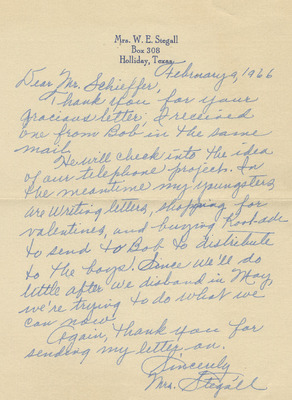 Mrs. W. E. Stegall
Box 308
Holliday, Texas
February 9, 1966
Dear Mr. Schieffer,
Thank you for your
gracious letter; I received
one from Bob in the same
mail.
He will check into the idea
of our telephone project. In
the meantime my youngsters
are writing letters, shopping for
valentines, and buying Koolade
to send to Bob to distribute
to the boys. Since we'll do
little after we disband in May,
we're trying to do what we
can now.
Again, thank you for
sending my letter on.
Sincerely
Mrs. Stegall